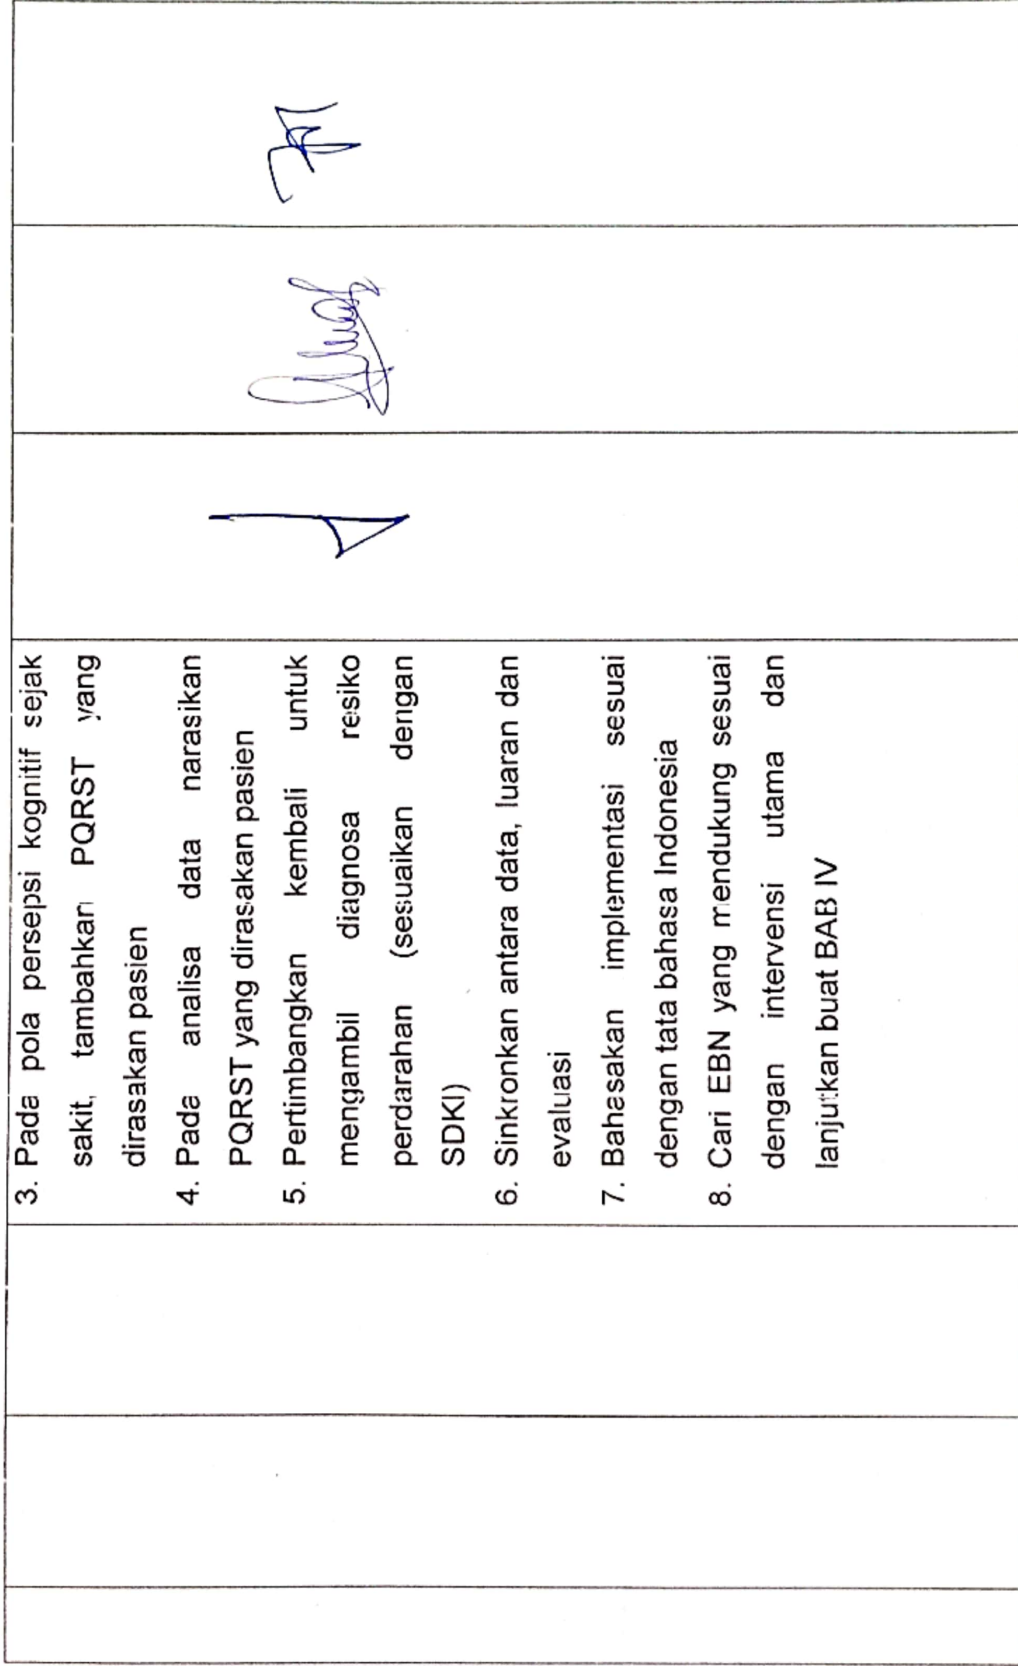 3. Pada pola persepsi kognitif sejak
sakit, tambahkan PQRST yang
dirasakan pasien
4. Pada analisa data narasikan
PQRST yang dirasakan pasien
5. Pertimbangkan kembali untuk
mengambil diagnosa resiko
perdarahan (sesuaikan dengan
SDKI)
6. Sinkronkan antara data, luaran dan
evaluasi
7. Bahasakan implementasi sesuai
dengan tata bahasa Indonesia
8. Cari EBN yang mendukung sesuai
dengan intervensi utama dan
lanjutkan buat BAB IV